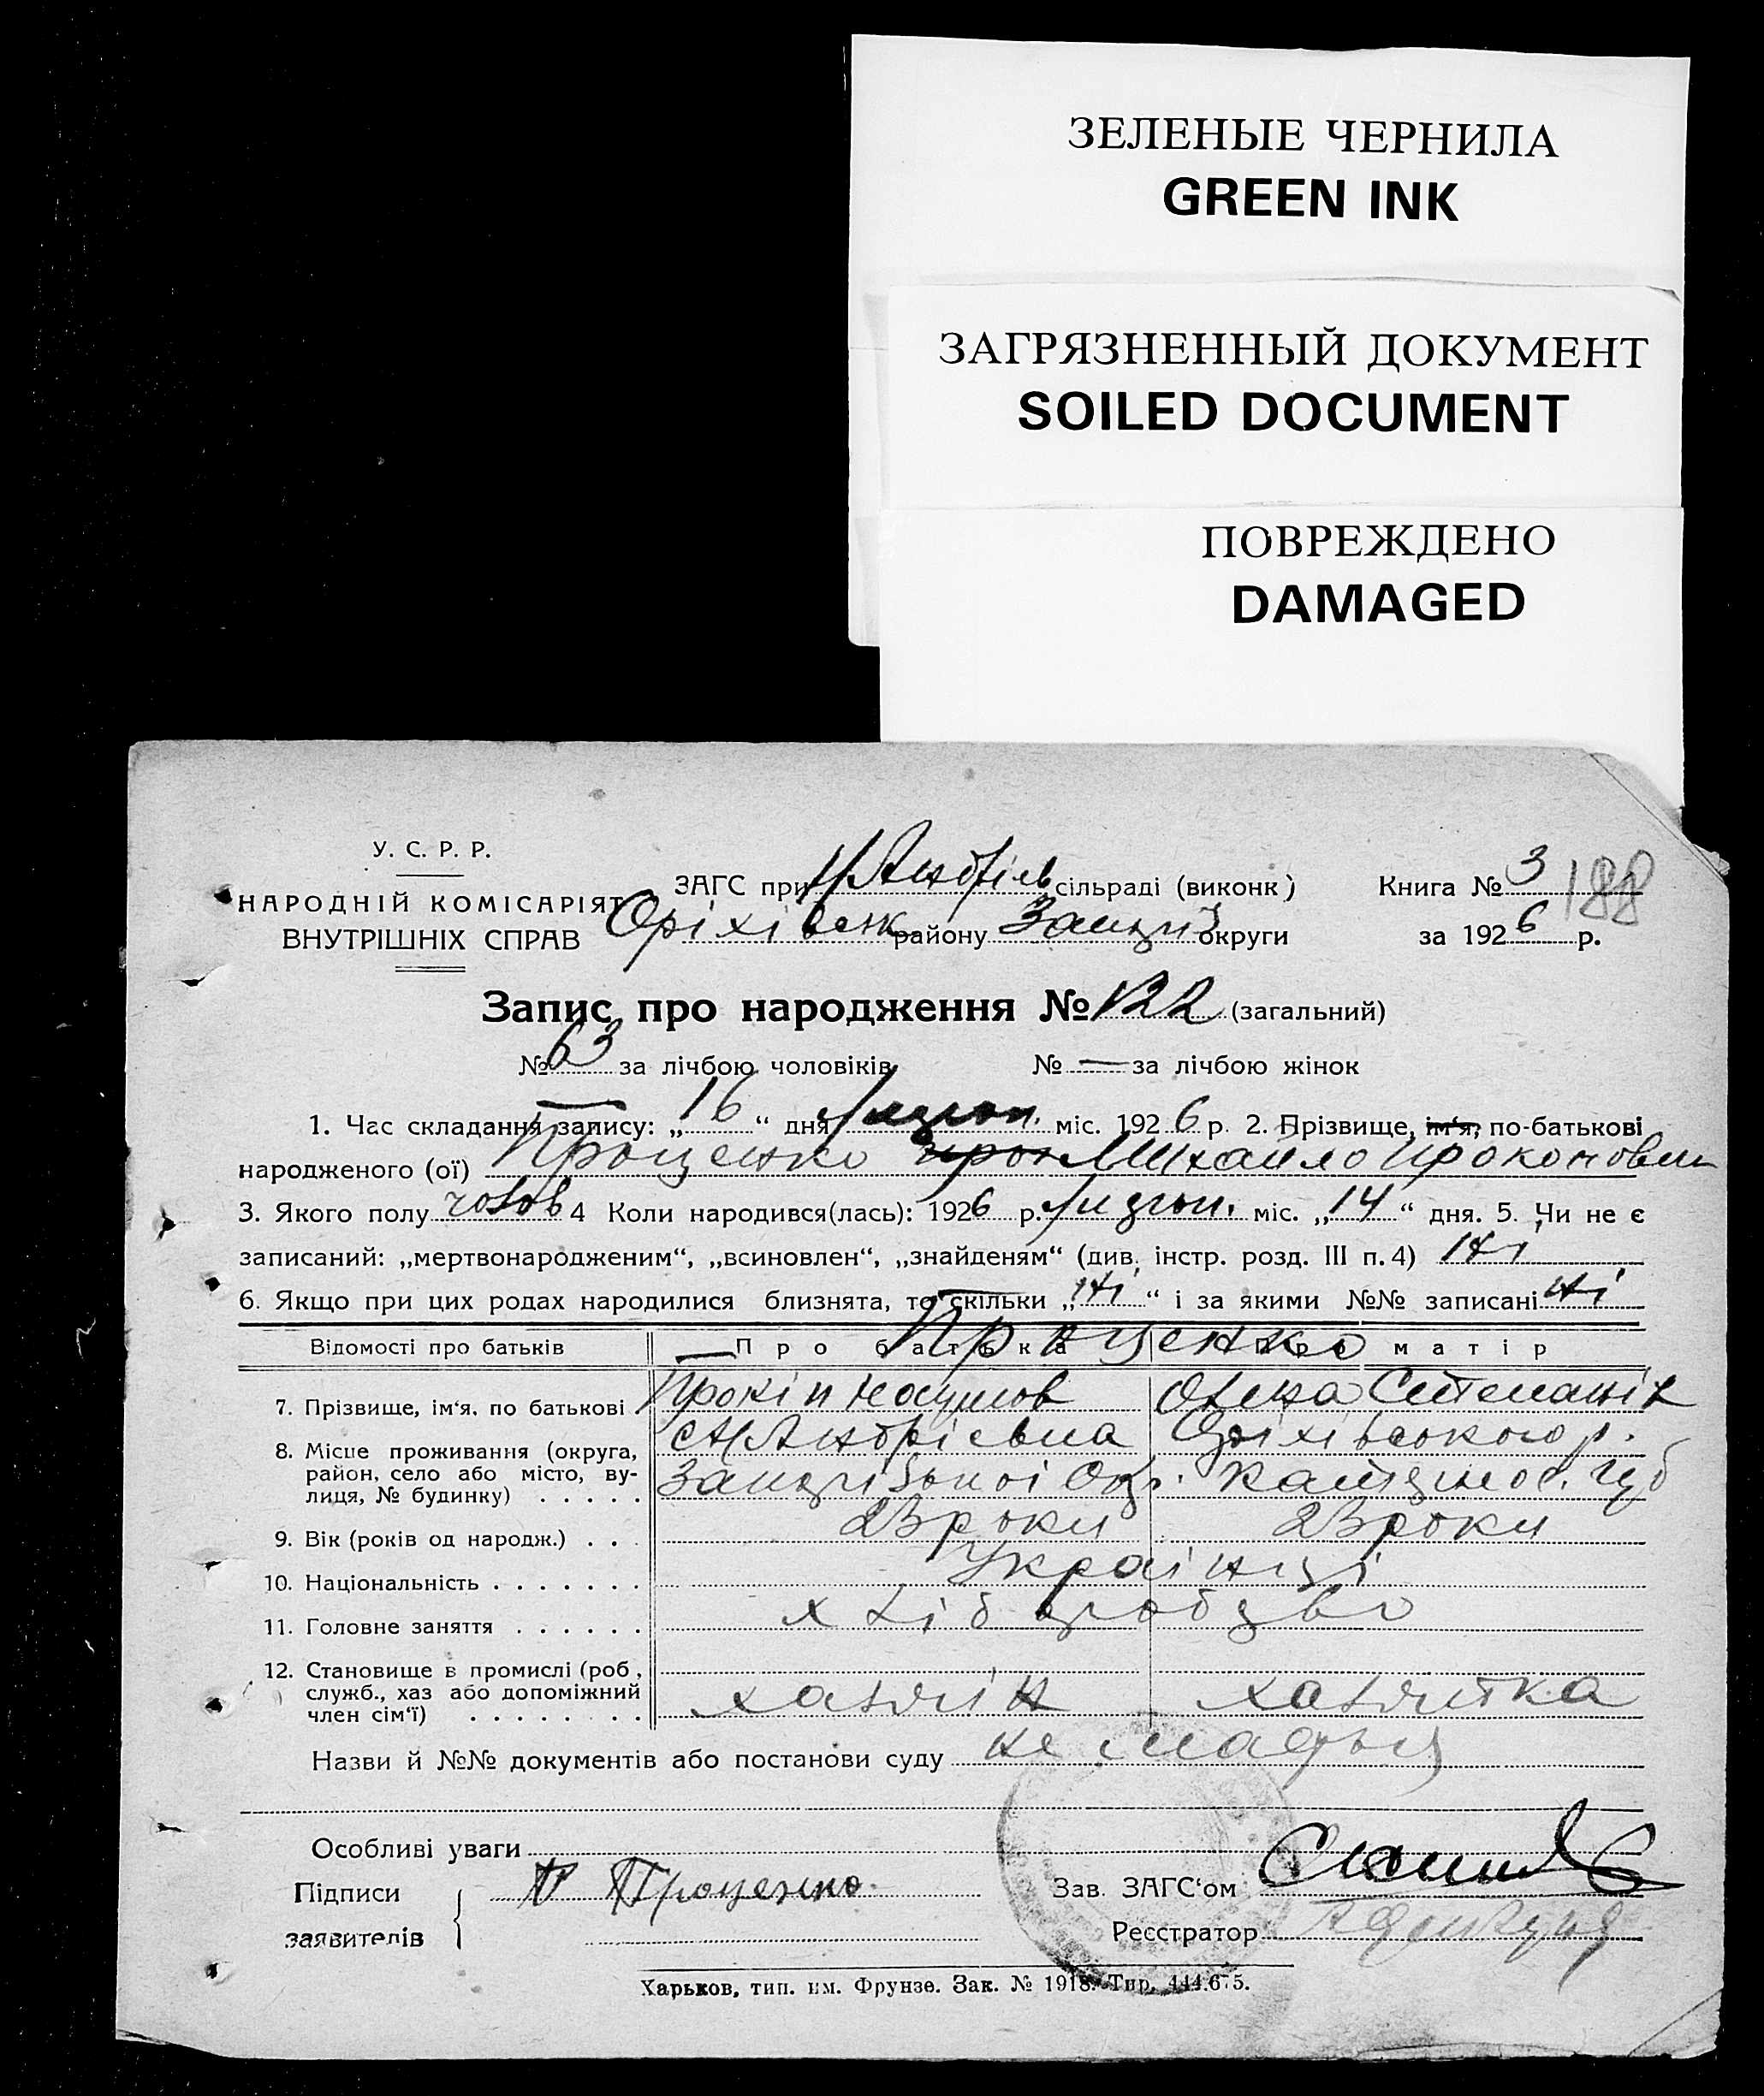 ЗЕЛЕНЫЕ ЧЕРНИЛА
GREEN INK
ЗАГРЯЗНЕННЫЙ ДОКУМЕНТ
SOILED DOCUMENT
ПОВРЕЖДЕНО
DAMAGED
У. С. Р. Р.
НАРОДНІЙ КОМІСАРІЯТ
ВНУТРІШНІХ СПРАВ
ЗАГС при Н Андріїв сільраді (виконк)
Книга № 3 188
Оріхівськ району Запоріз округи
за 1926 р.
Запис про народження № 122 (загальний)
№ 63 за лічбою чоловіків № — за лічбою жінок
1. Час складання запису: „16“ дня міс. 1926 р. 2. Прізвище, ім‘я, по-батькові
народженого (ої) Проценко Михайло Прокопович
3. Якого полу чолов 4 Коли народився(лась): 1926 р. міс. „14“ дня. 5. Чи не є
записаний: „мертвонародженим“, „всиновлен“, „знайденям“ (див. інстр. розд. III п. 4) ні
6. Якщо при цих родах народилися близнята, то скільки „ні“ і за якими №№ записані ні
Відомості про батьків Про батька Про матір
Проценко
7. Прізвище, ім‘я, по батькові Прокіп Наумов Олена
8. Місце проживання (округа, район, село або місто, вулиця, № будинку) Оріхівського р.
9. Вік (років од народж.) 23 роки 23 роки
10. Національність Українці
11. Головне заняття хліборобство
12. Становище в промислі (роб, служб., хаз або допоміжний член сім‘ї) хазяїн хазяйка
Назви й №№ документів або постанови суду
Особливі уваги
Підписи заявителів П Проценко
Зав. ЗАГС‘ом
Реєстратор
Харьков, тип. им. Фрунзе. Зак. № 1918. Тир. 444.675.